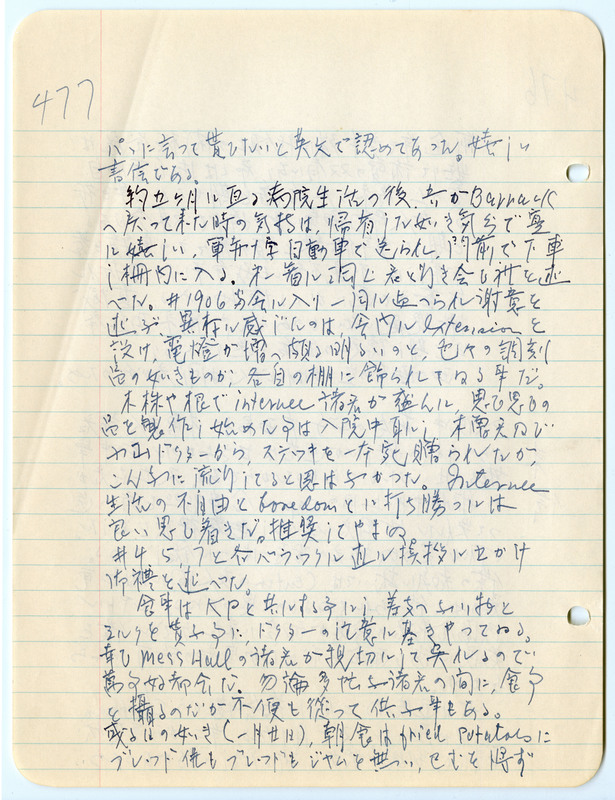 477
パンに言って貰ひたいと英文で認めてあった。嬉しい
書信である。
約五ヶ月に亘る病院生活の後、吾がBarrack
へ戻って来た時の気持は、帰省した如き気分で実
に嬉しい、軍赤十字自動車で送られ、門前で下車
し柵内に入る。第一着に同じ君と行き会し礼を述
べた。#1906 舎に入り一同に迎へられ謝意を
述ぶ、異様に感じたのは、舎内にextensionを
設け、電燈が増へ頗る明るいのと、色々の調刻
品の如きものが、各自の棚に飾られてゐる事だ。
木株や根でinternee諸君が盛んに、思ひ思ひの
品を製作し始めた事は入院中耳にし 君及び
ドクターから、ステッキを一本宛贈られたが、
こんなに流行してると思はなかった。Internee
生活の不自由とboredomとに打ち勝つには
良い思ひ着きだ。推奨してやまぬ
#4 5, 7と各バラックに直に挨拶に出かけ
御禮を述べた。
食事はKPと共にする事にし、差支へない物と
ミルクを貰ふ事に、ドクターの注意に基きやってゐる。
幸ひMess Hallの諸君が親切にして呉れるので
萬事好都合だ。勿論多忙な諸君の間に、食事
を攝るのだが不便も従って供ふ事もある。
或る日の如き(一月廿日)、朝食はfried potatoesに
ブレッド 供もブレッドもジャムを無い、 を得ず